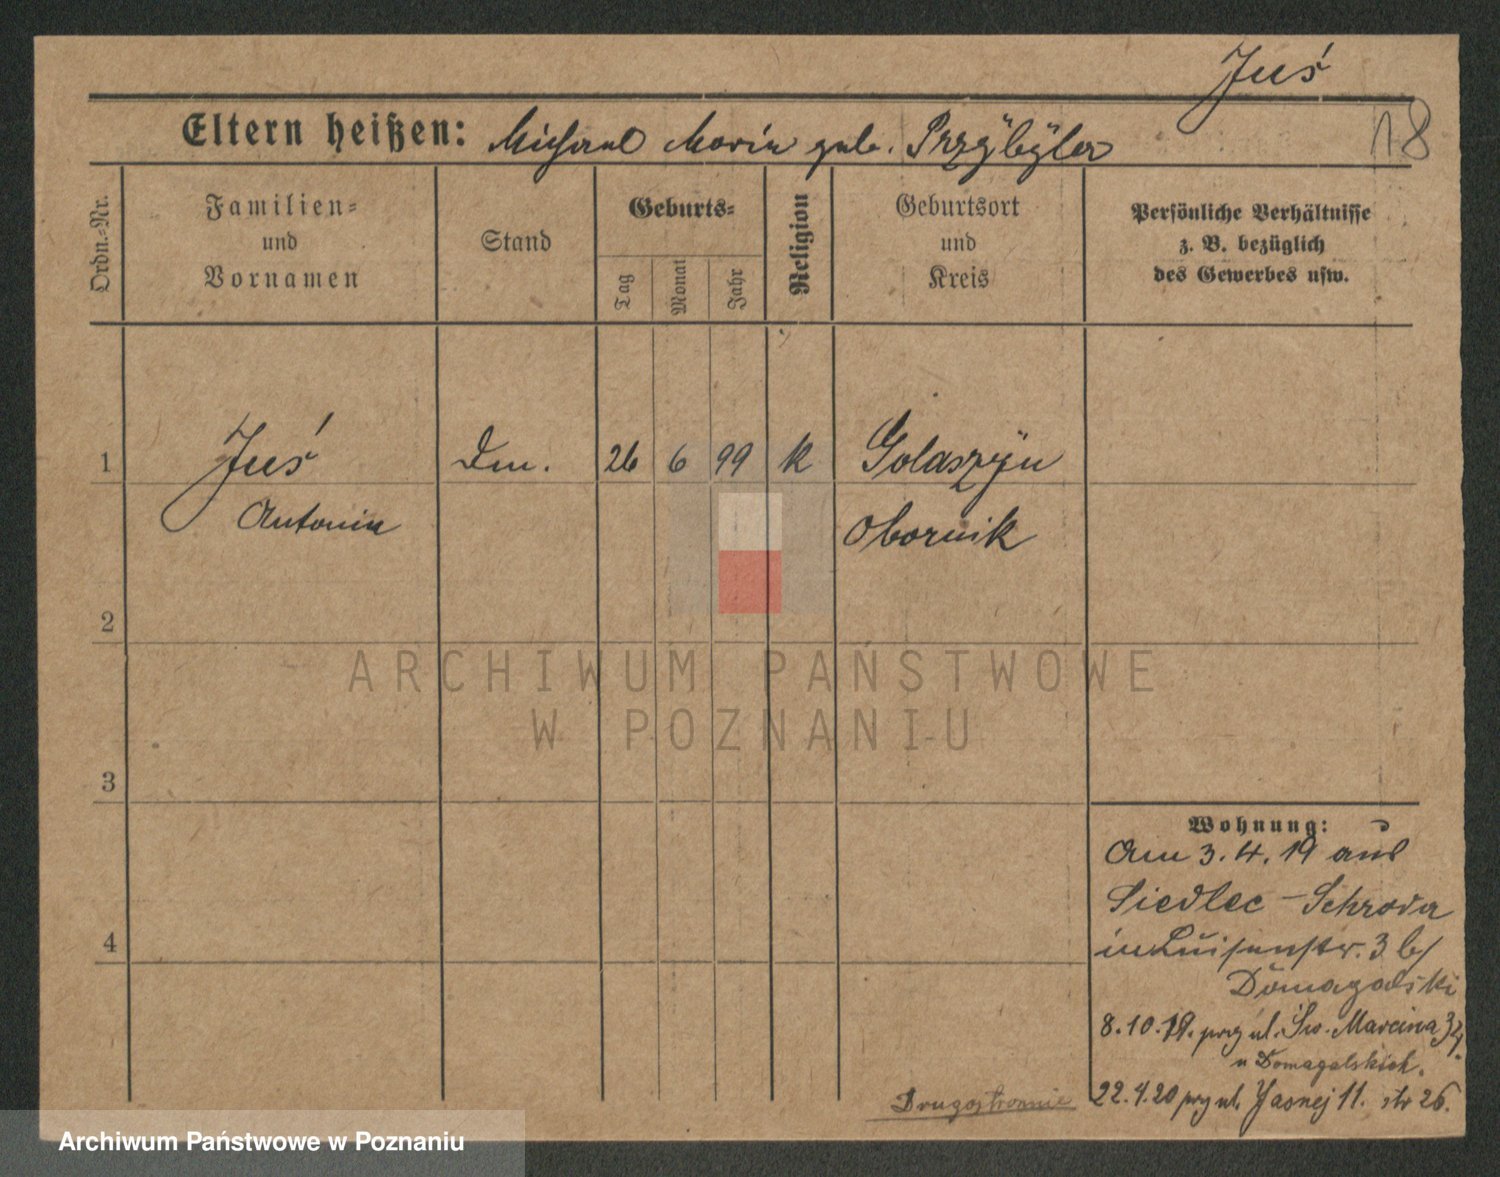 Juś
18
Eltern heißen: Michael Maria geb. Przybyła
Ordn.-Nr.
Familien-
und
Vornamen
Stand
Geburts-
Tag
Monat
Jahr
Religion
Geburtsort
und
Kreis
Persönliche Verhältnisse
z. B. bezüglich
des Gewerbes usw.
1
Juś
26 6 99 k
Golaszyn
Antonia
Obornik
2
3
4
Wohnung:
Am 3.4.19 aus
Siedlec - Schroda
in Luisenstr. 3 b/
Domagalski
8.10.19. przy ul. Św. Marcina
u Domagalskich.
22.4.20 przy ul. Jasnej 11. str 26.
Drugostronnie
ARCHIWUM PAŃSTWOWE
W POZNANIU
Archiwum Państwowe w Poznaniu